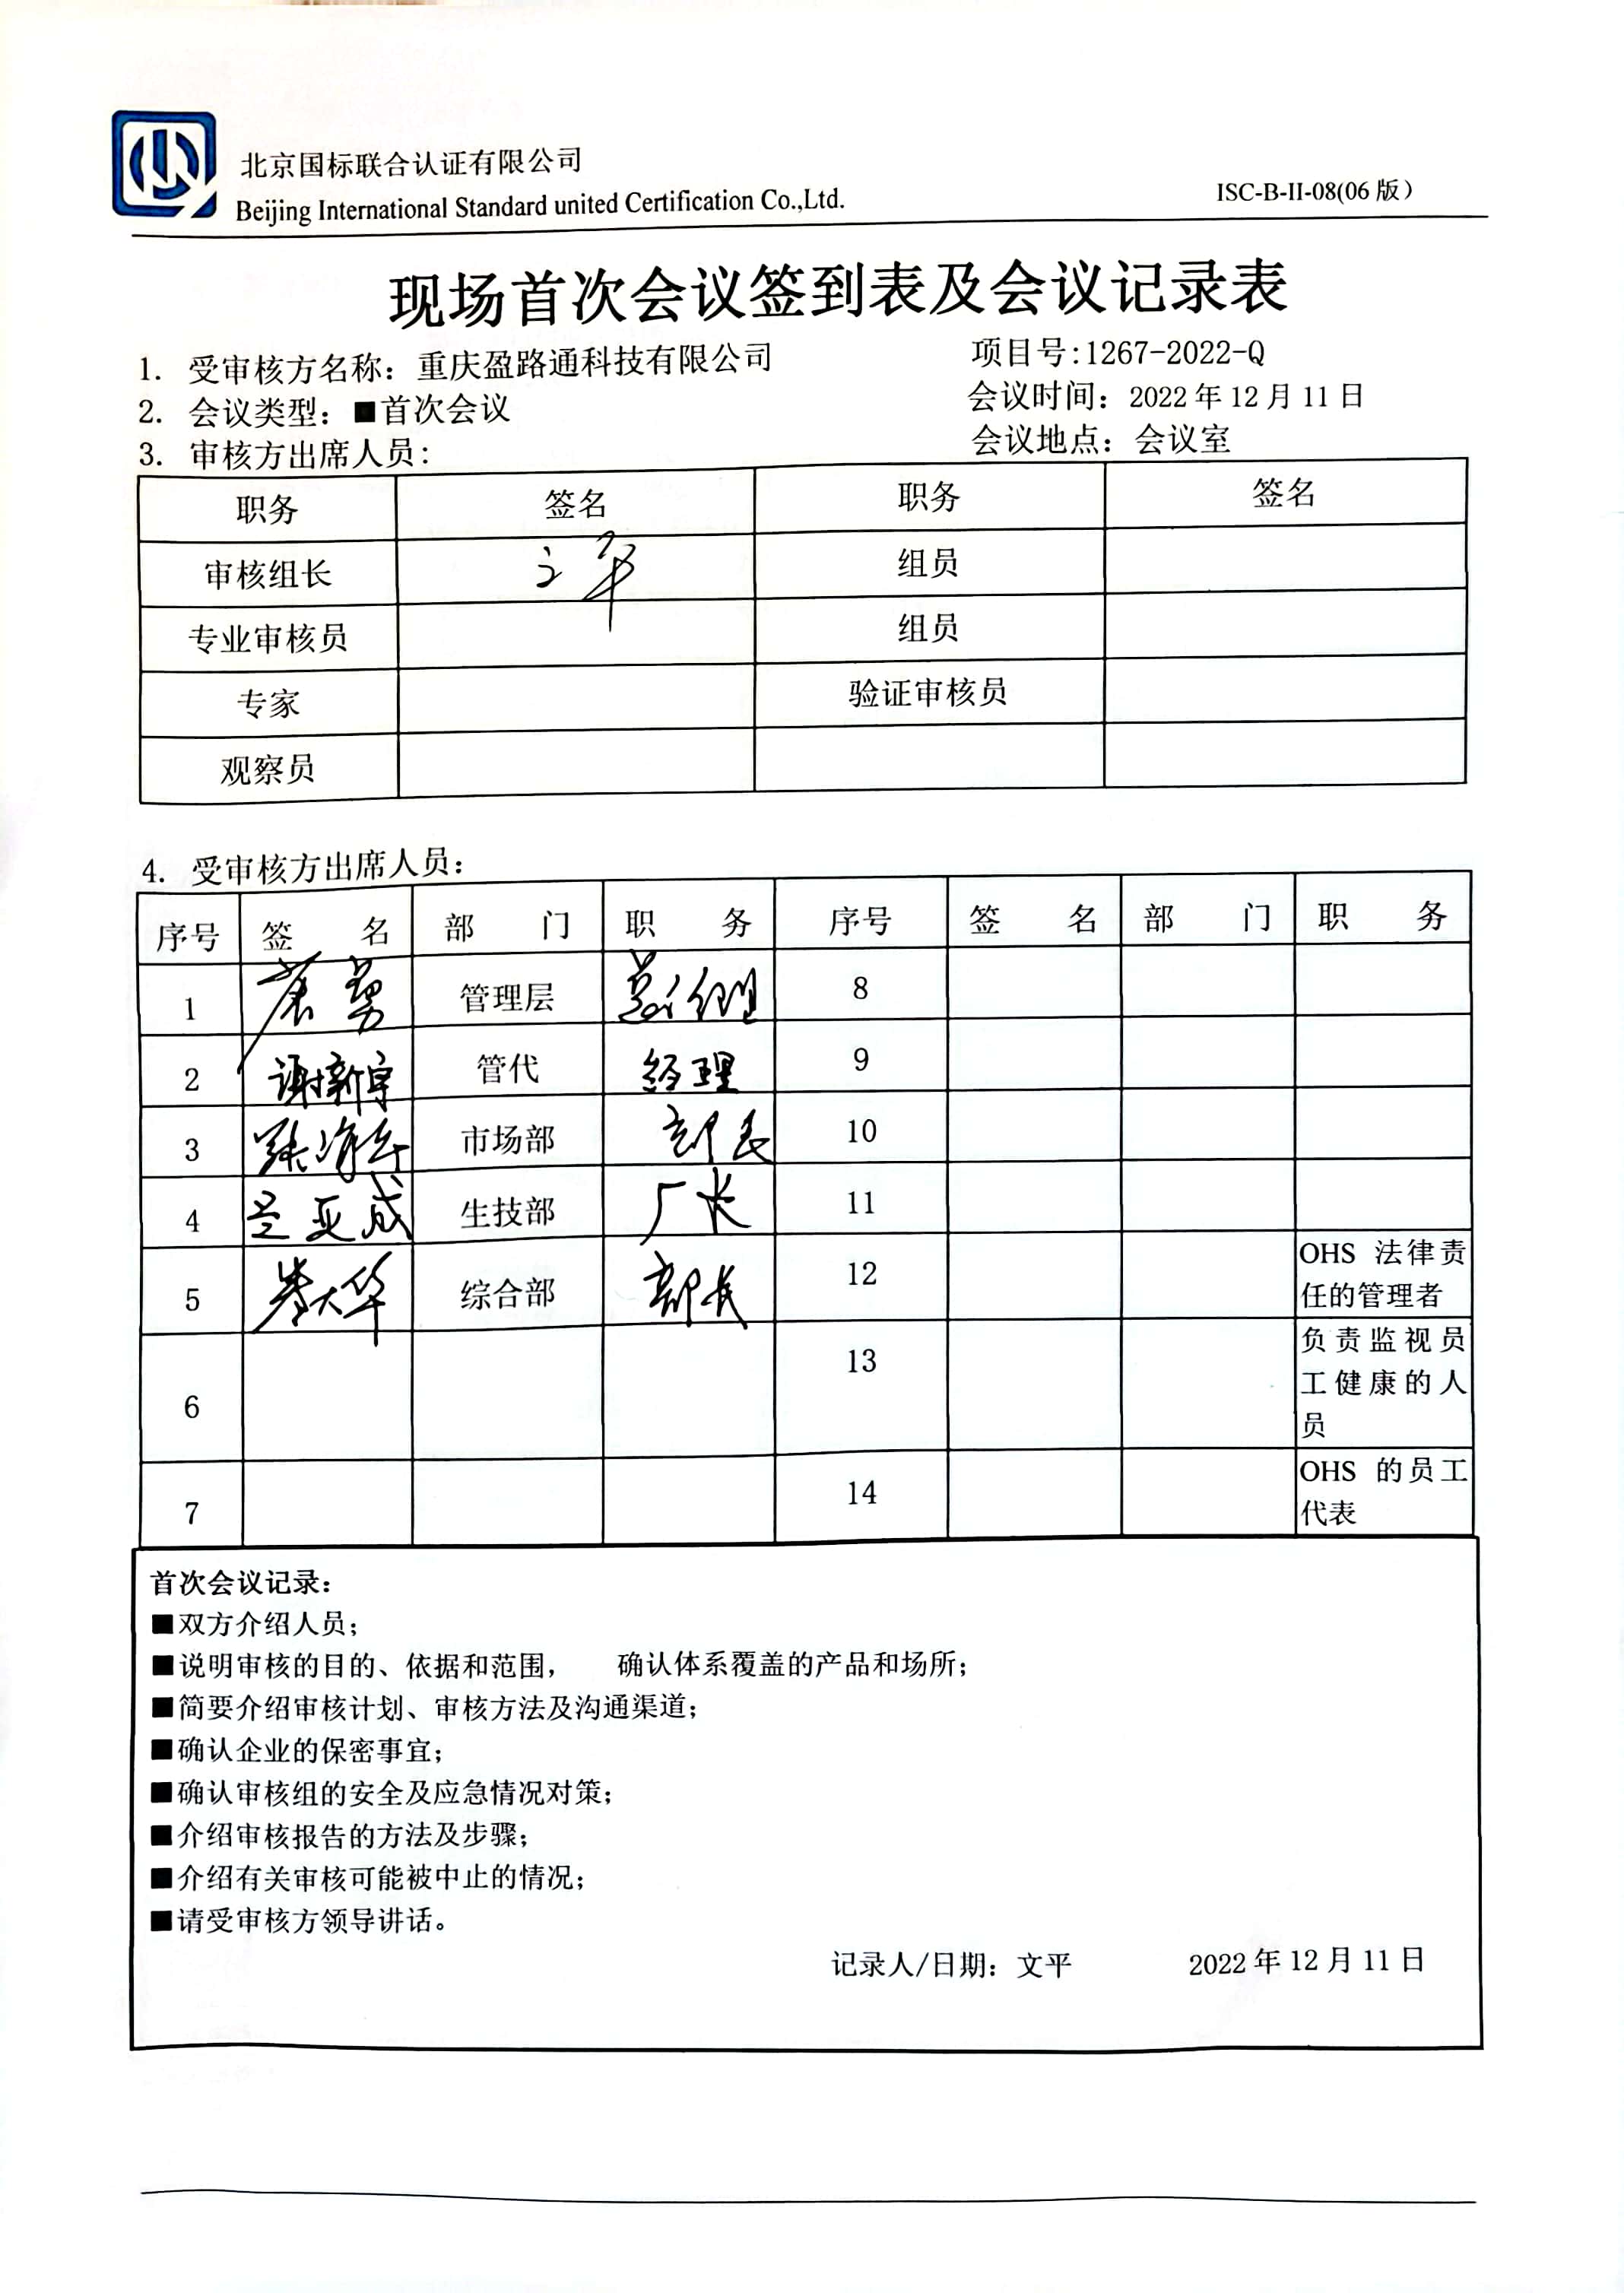 北京国标联合认证有限公司
Beijing International Standard united Certification Co.,Ltd.
ISC-B-II-08(06版)
现场首次会议签到表及会议记录表
1. 受审核方名称：重庆盈路通科技有限公司 项目号:1267-2022-Q
2. 会议类型：■首次会议 会议时间：2022年12月11日
3. 审核方出席人员： 会议地点：会议室
职务 签名 职务 签名
审核组长 文平 组员
专业审核员 组员
专家 验证审核员
观察员
4. 受审核方出席人员：
序号 签 名 部 门 职 务 序号 签 名 部 门 职 务
1 管理层 总经理 8
2 谢新宇 管代 经理 9
3 张海兵 市场部 部长 10
4 兰亚成 生技部 厂长 11
5 综合部 部长 12 OHS 法律责
任的管理者
6 13 负责监视员
工健康的人
员
7 14 OHS 的员工
代表
首次会议记录：
■双方介绍人员；
■说明审核的目的、依据和范围， 确认体系覆盖的产品和场所；
■简要介绍审核计划、审核方法及沟通渠道；
■确认企业的保密事宜；
■确认审核组的安全及应急情况对策；
■介绍审核报告的方法及步骤；
■介绍有关审核可能被中止的情况；
■请受审核方领导讲话。
记录人/日期：文平 2022年12月11日